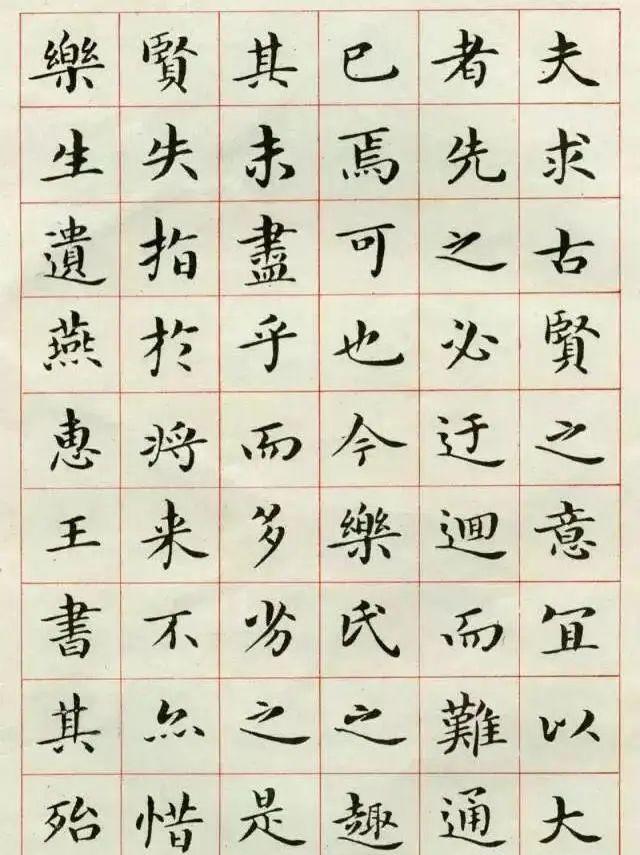 夫求古賢之意宜以大
者先之必迂迴而難通
已焉可也今樂氏之趣
其未盡乎而多劣之是
賢失指於将来不亦惜
樂生遺燕惠王書其殆